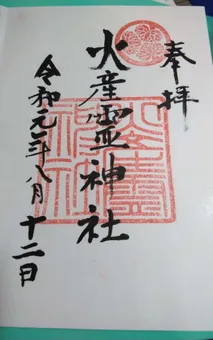 奉拝
火産霊神社
令和元年八月十二日